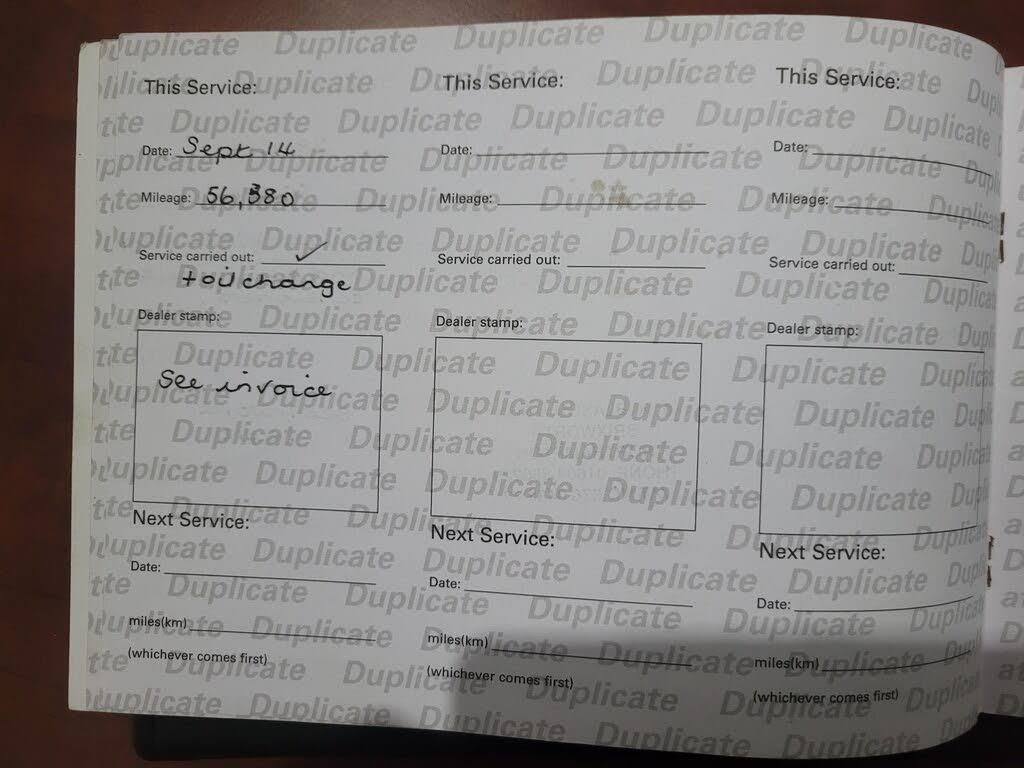 Duplicate Duplicate Duplicate Duplicate Duplicate
This Service:
Date: Sept 14
Mileage: 56,380
Service carried out: ✓
+ oil change
Dealer stamp:
See invoice
Next Service:
Date:
miles(km)
(whichever comes first)
This Service:
Date:
Mileage:
Service carried out:
Dealer stamp:
Next Service:
Date:
miles(km)
(whichever comes first)
This Service:
Date:
Mileage:
Service carried out:
Dealer stamp:
Next Service:
Date:
miles(km)
(whichever comes first)